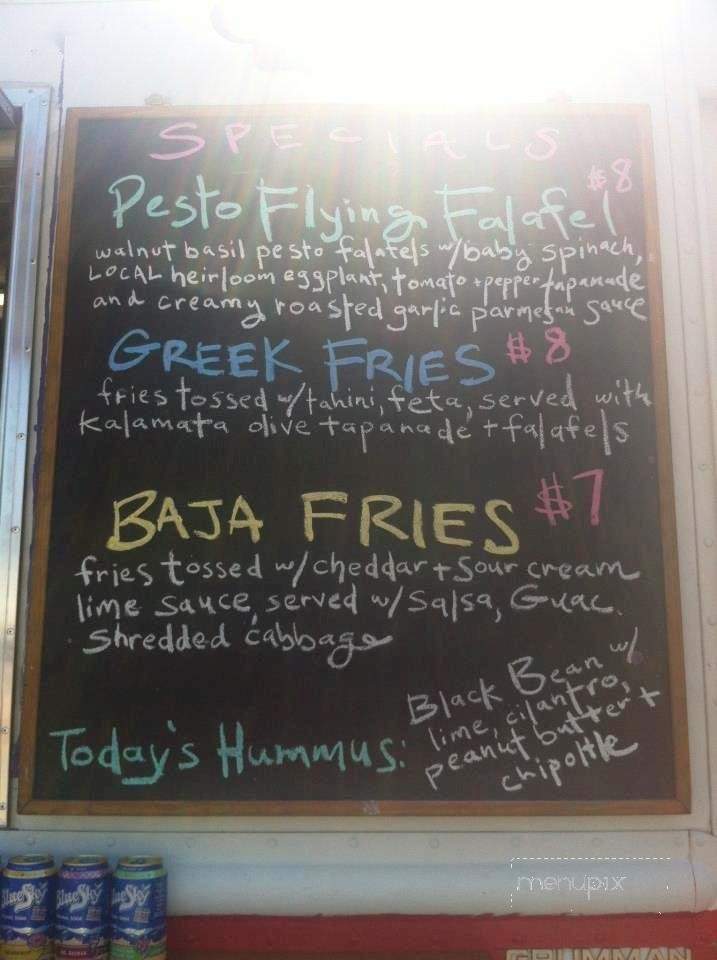 SPECIALS
Pesto Flying Falafel $8
walnut basil pesto falafels w/baby spinach,
LOCAL heirloom eggplant, tomato + pepper tapanade
and creamy roasted garlic parmesan sauce
GREEK FRIES $8
fries tossed w/tahini, feta, served with
kalamata olive tapanade + falafels
BAJA FRIES $7
fries tossed w/cheddar + sour cream
lime sauce, served w/ Salsa, Guac.
shredded cabbage
Today's Hummus:
Black Bean w/
lime, cilantro,
peanut butter +
chipoltle
Blue Sky
Blue Sky
Blue Sky
menupix
GRUMMAN